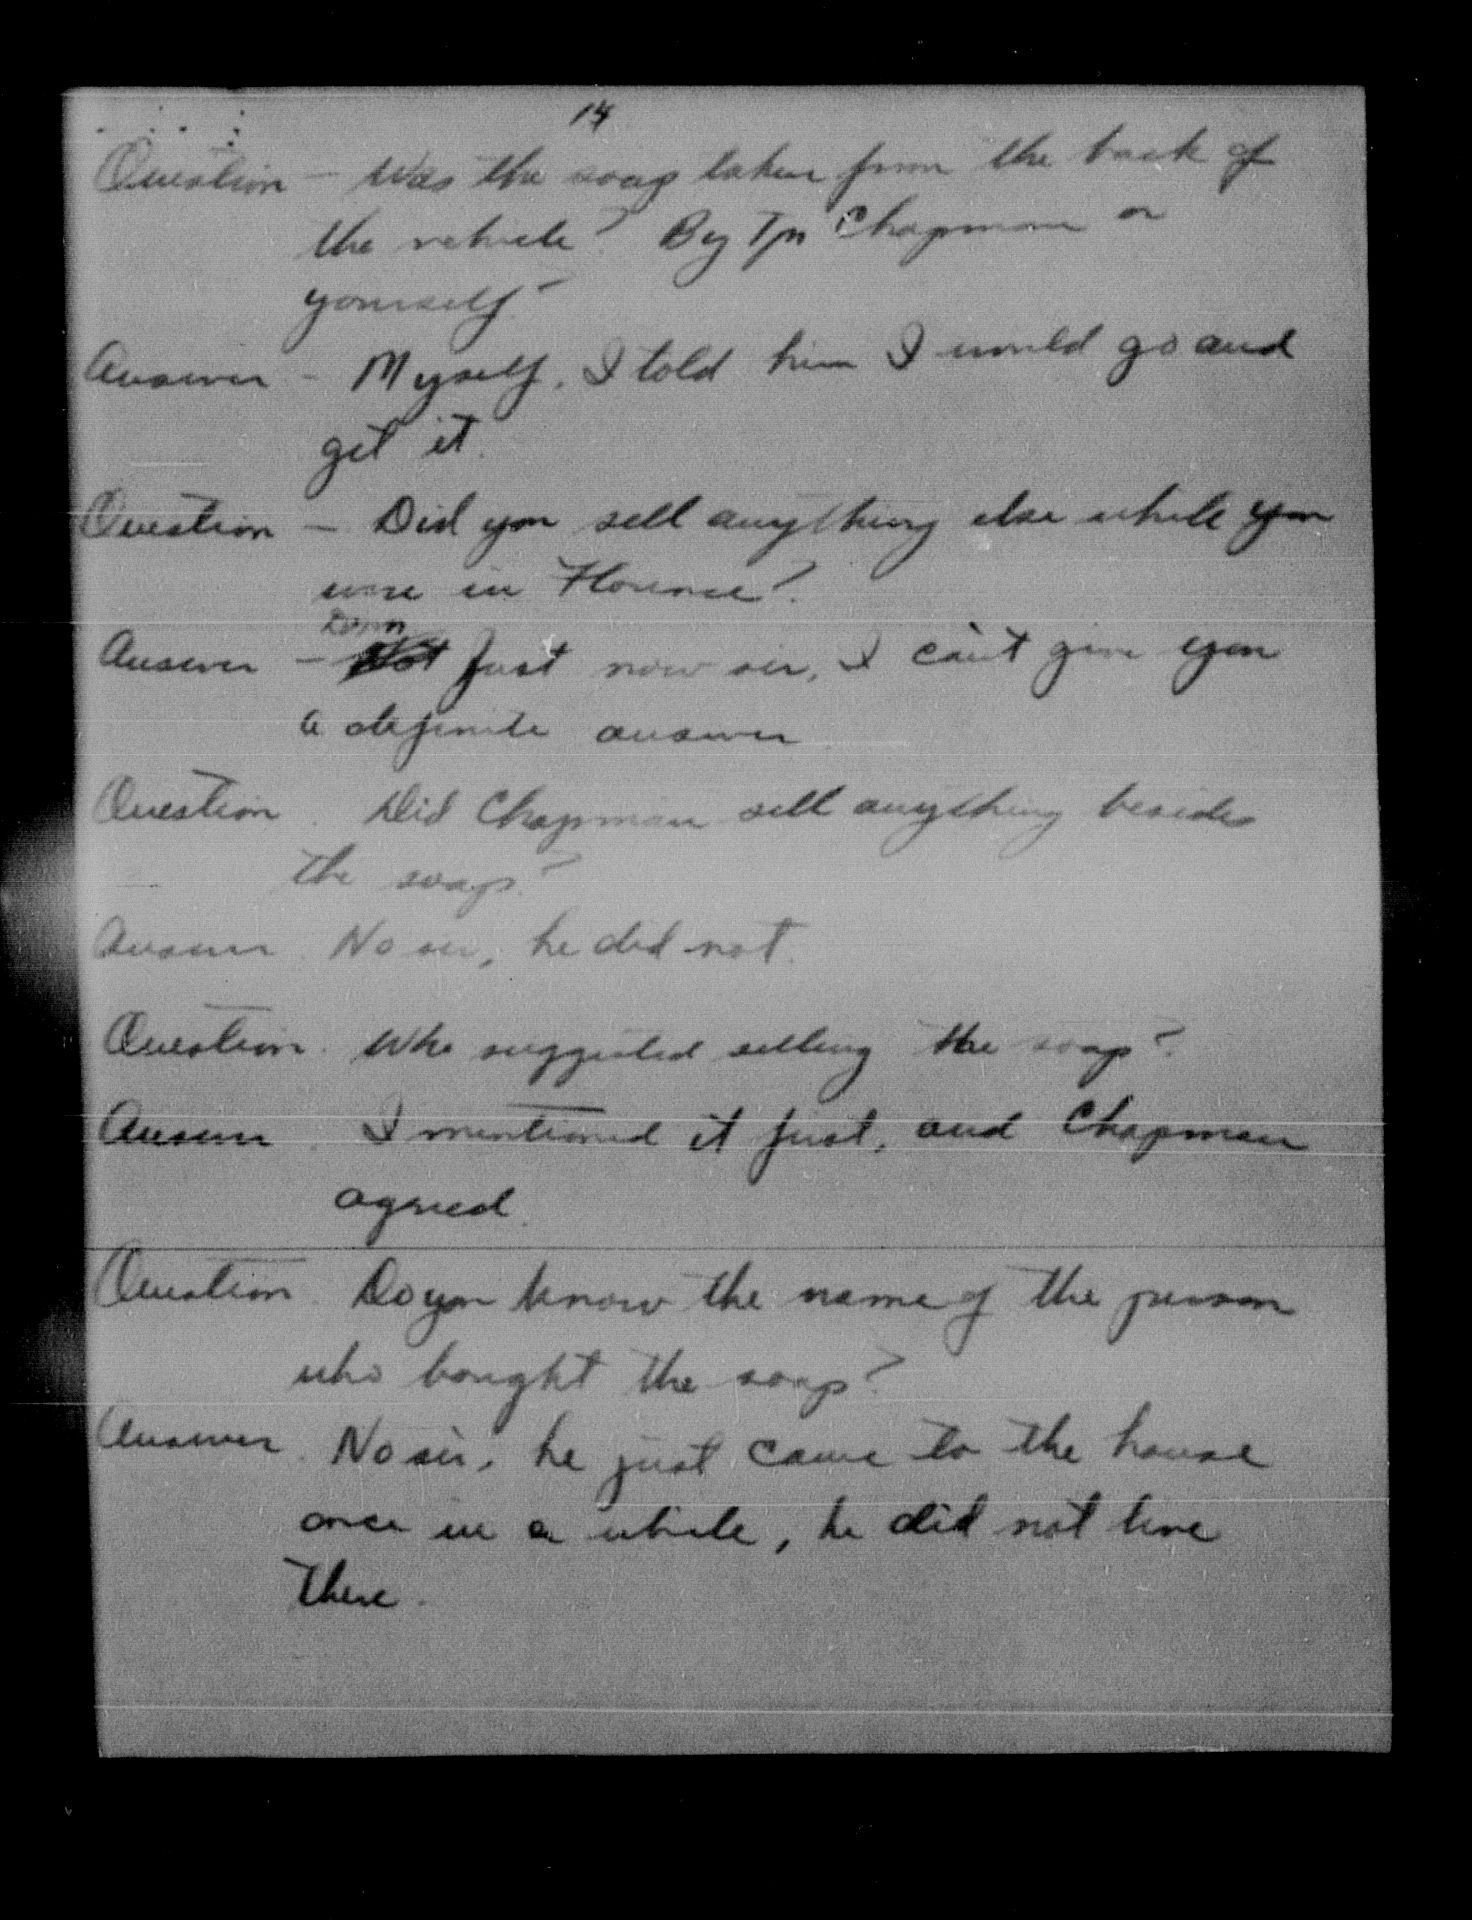 14
Question - Was the soap taken from the back of
the vehicle? By Tpr Chapman or
yourself?
Answer - Myself, I told him I would go and
get it.
Question - Did you sell anything else while you
were in Florence?
Answer - Not Just now sir, I can't give you
a definite answer
Question. Did Chapman sell anything besides
the soap?
Answer. No sir, he did not.
Question. Who suggested selling the soap?
Answer. I mentioned it first, and Chapman
agreed.
Question. Do you know the name of the person
who bought the soap?
Answer. No sir, he just came to the house
once in a while, he did not live
there.